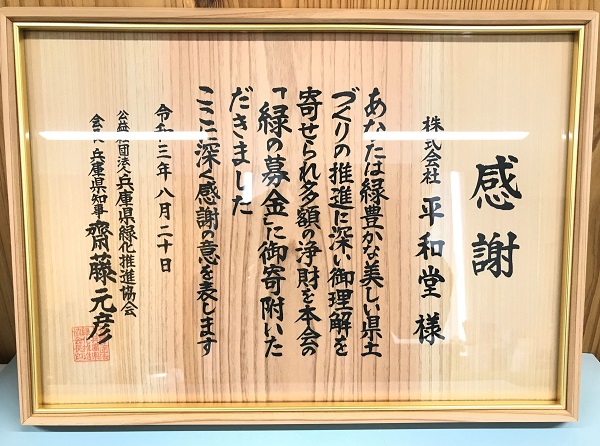 感謝
株式会社 平和堂 様
あなたは緑豊かな美しい県土
づくりの推進に深い御理解を
寄せられ多額の浄財を本会の
「緑の募金」に御寄附いた
だきました
ここに深く感謝の意を表します
令和三年八月二十日
公益社団法人兵庫県緑化推進協会
会長 兵庫県知事 齋藤元彦